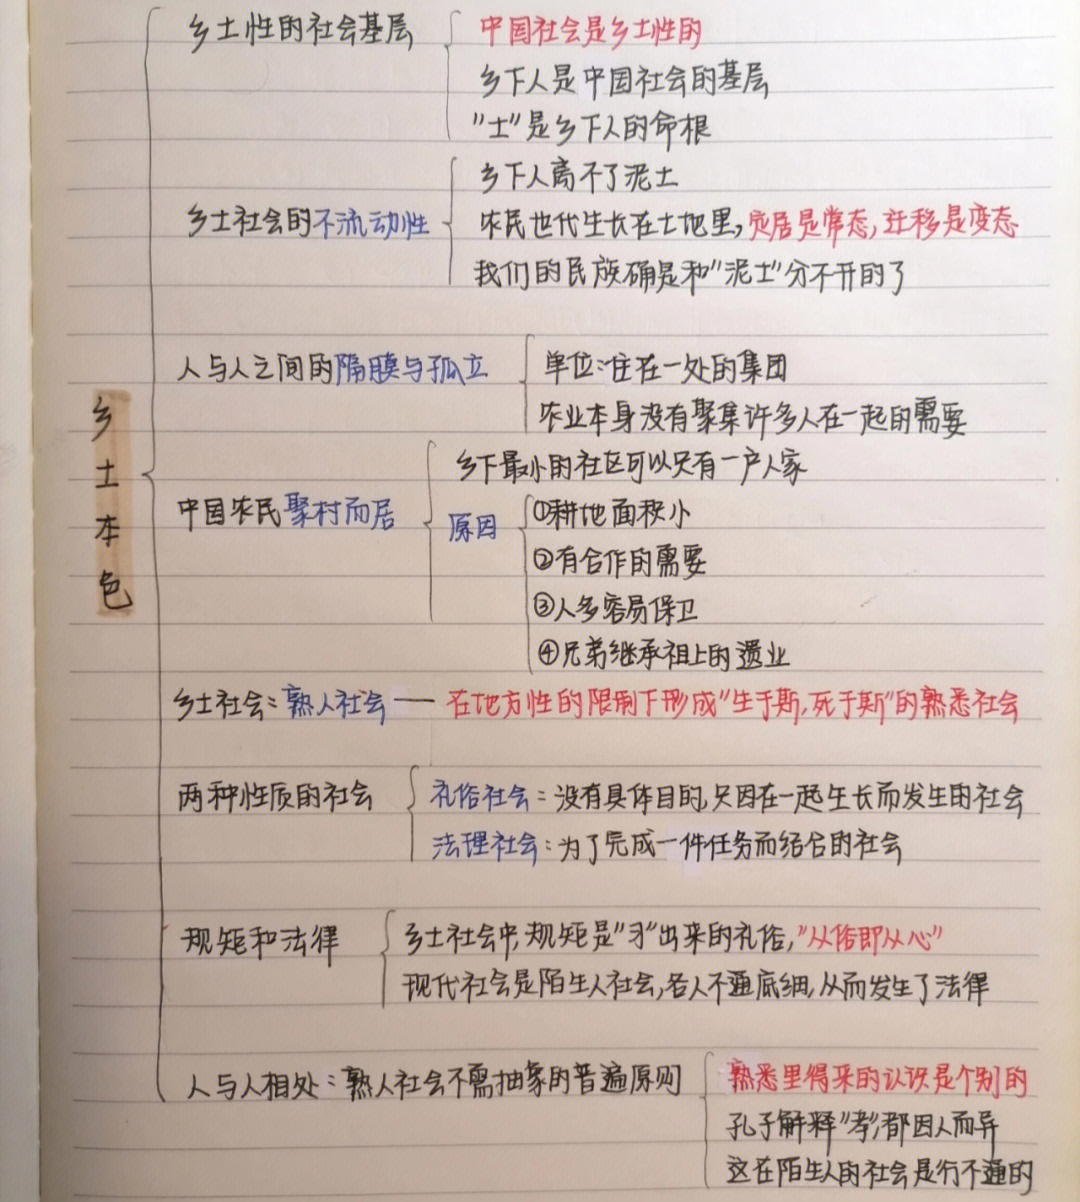 乡土本色
乡土性的社会基层
中国社会是乡土性的
乡下人是中国社会的基层
"土"是乡下人的命根
乡土社会的不流动性
乡下人离不了泥土
农民世代生长在土地里,定居是常态,迁移是变态
我们的民族确是和"泥土"分不开的了
人与人之间的隔膜与孤立
单位:住在一处的集团
农业本身没有聚集许多人在一起的需要
中国农民聚村而居
乡下最小的社区可以只有一户人家
原因
①耕地面积小
②有合作的需要
③人多容易保卫
④兄弟继承祖上的遗业
乡土社会:熟人社会——在地方性的限制下形成"生于斯,死于斯"的熟悉社会
两种性质的社会
礼俗社会:没有具体目的,只因在一起生长而发生的社会
法理社会:为了完成一件任务而结合的社会
规矩和法律
乡土社会中,规矩是"习"出来的礼俗,"从俗即从心"
现代社会是陌生人社会,各人不通底细,从而发生了法律
人与人相处:熟人社会不需抽象的普遍原则
熟悉里得来的认识是个别的
孔子解释"孝"都因人而异
这在陌生人的社会是行不通的